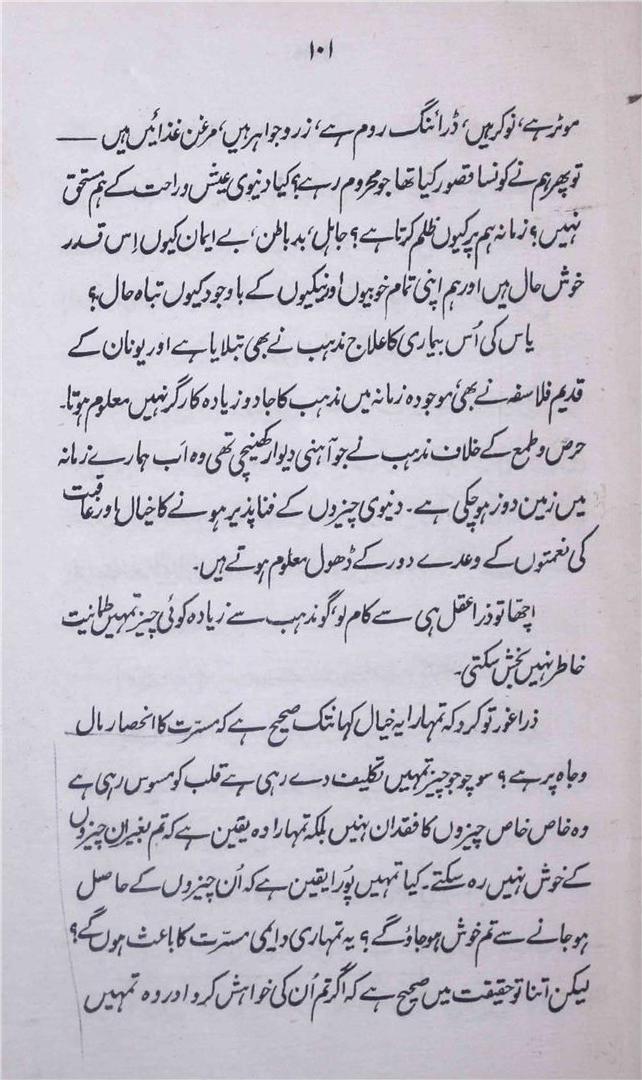 ۱۰۱
موٹر ہے، نوکر ہیں، ڈرائنگ روم ہے، زر و جواہر ہیں، مرغن غذائیں ہیں ——
تو پھر ہم نے کونسا قصور کیا تھا جو محروم رہے؟ کیا دنیوی عیش و راحت کے ہم مستحق
نہیں؟ زمانہ ہم پر کیوں ظلم کرتا ہے؟ جاہل، بد باطن، بے ایمان کیوں اِس قدر
خوش حال ہیں اور ہم اپنی تمام خوبیوں اور نیکیوں کے باوجود کیوں تباہ حال؟
یاس کی اُس بیماری کا علاج مذہب نے بھی بتلایا ہے اور یونان کے
قدیم فلاسفہ نے بھی، موجودہ زمانہ میں مذہب کا جادو زیادہ کارگر نہیں معلوم ہوتا۔
حرص و طمع کے خلاف مذہب نے جو آہنی دیوار کھینچی تھی وہ اَب ہمارے زمانہ
میں زمین دوز ہوچکی ہے۔ دنیوی چیزوں کے فنا پذیر ہونے کا خیال اور عاقبت
کی نعمتوں کے وعدے دور کے ڈھول معلوم ہوتے ہیں۔
اچھا تو ذرا عقل ہی سے کام لو، گو مذہب سے زیادہ کوئی چیز تمہیں طمانیت
خاطر نہیں بخش سکتی۔
ذرا غور تو کرو کہ تمہارا یہ خیال کہانتک صحیح ہے کہ مسرّت کا انحصار مال
و جاہ پر ہے؟ سوچو جو چیز تمہیں تکلیف دے رہی ہے قلب کو مسوس رہی ہے
وہ خاص خاص چیزوں کا فقدان نہیں بلکہ تمہارا وہ یقین ہے کہ تم بغیر ان چیزوں
کے خوش نہیں رہ سکتے۔ کیا تمہیں پُورا یقین ہے کہ اُن چیزوں کے حاصل
ہو جانے سے تم خوش ہو جاؤ گے؟ یہ تمہاری دایمی مسرّت کا باعث ہوں گے؟
لیکن اتنا تو حقیقت میں صحیح ہے کہ اگر تم اُن کی خواہش کرو اور وہ تمہیں